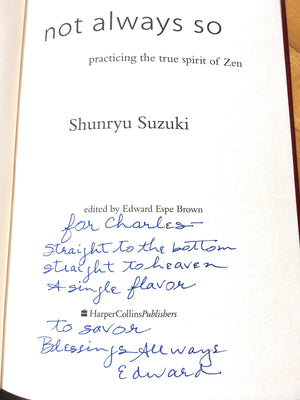 not always so
practicing the true spirit of Zen
Shunryu Suzuki
edited by Edward Espe Brown
for Charles—
Straight to the bottom
straight to heaven
A single flavor
HarperCollinsPublishers
to savor
Blessings Allways
Edward